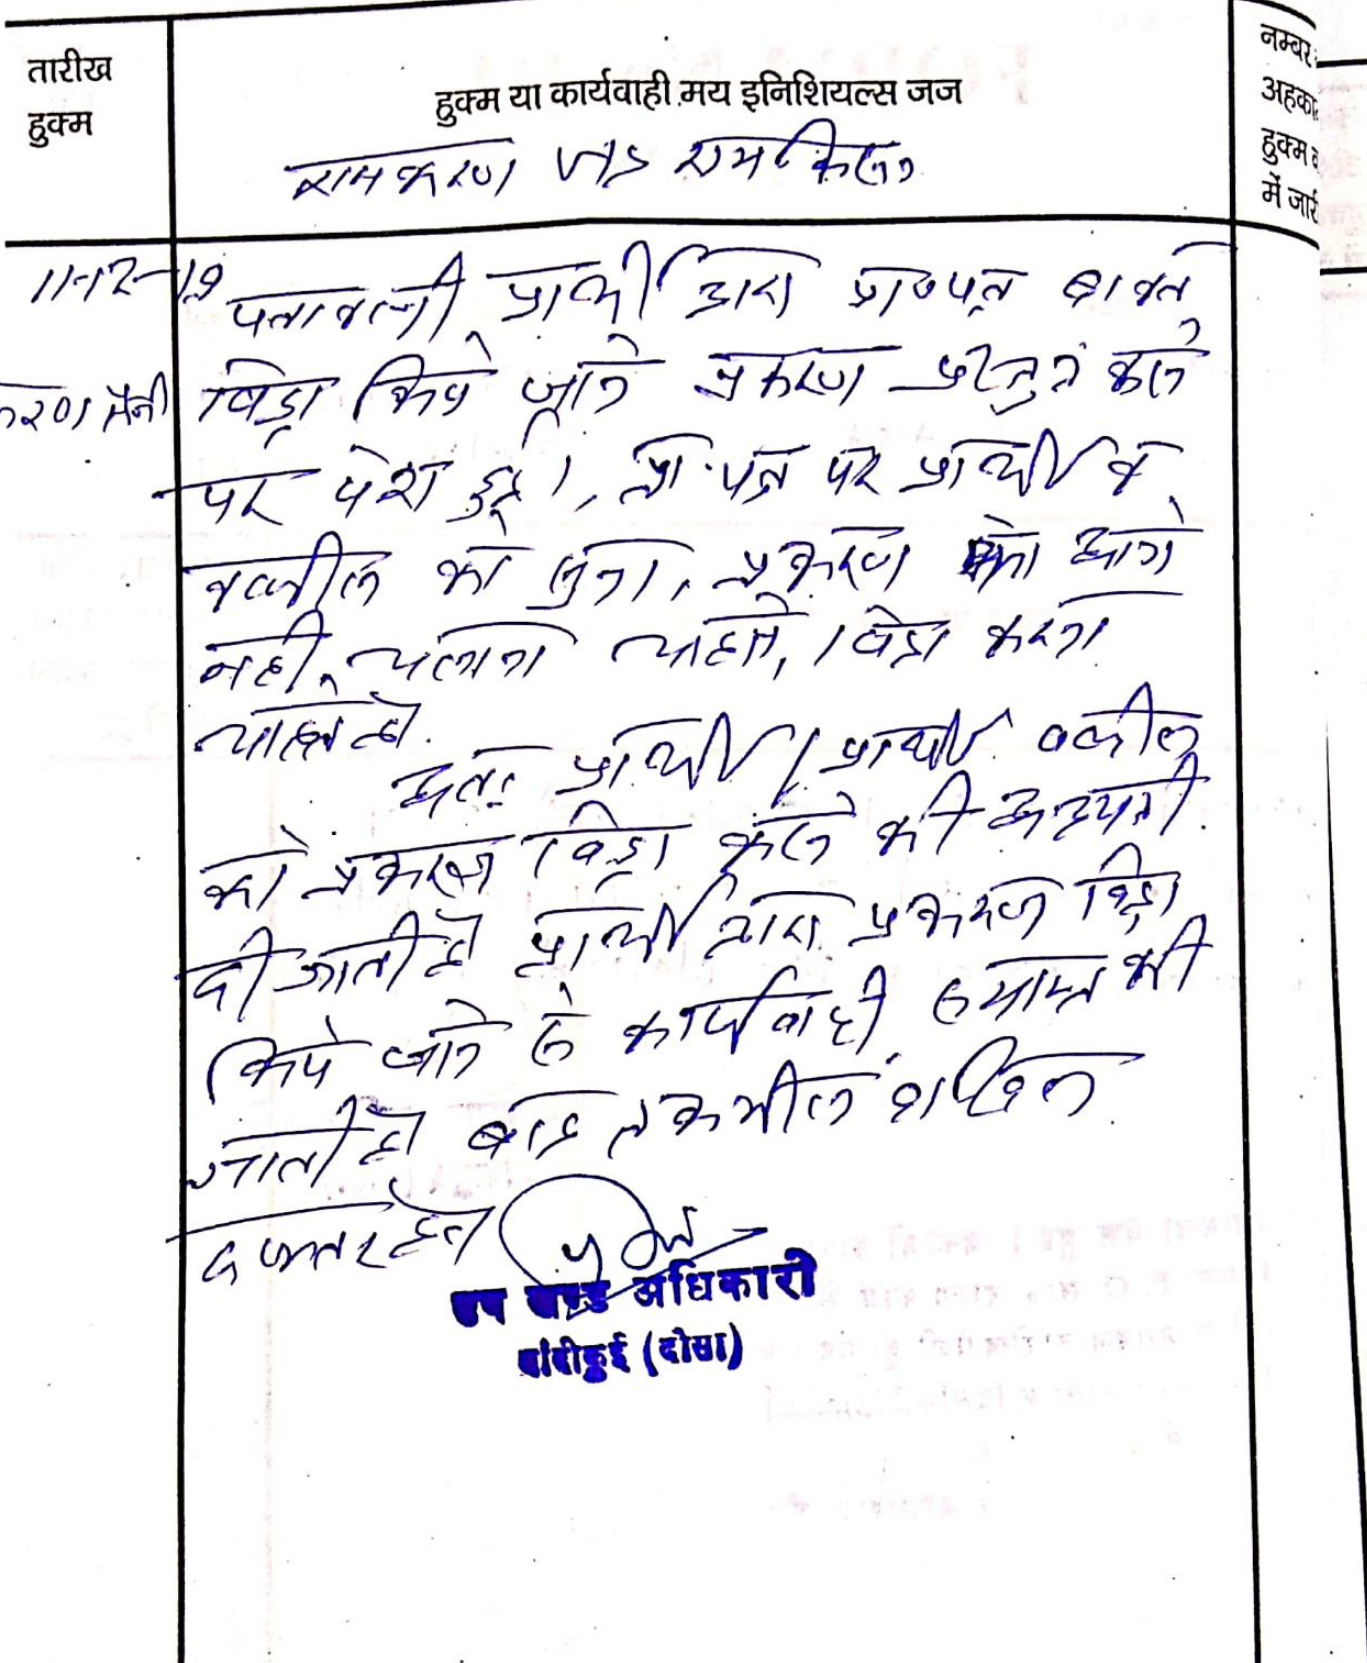 तारीख
हुक्म
हुक्म या कार्यवाही मय इनिशियल्स जज
नम्बर
अहका
हुक्म
में जारी
रामकरण v/s रामकिशन
11-12-19
पत्रावली प्रार्थी द्वारा प्रा०पत्र बाबत
विड्रा किये जाने प्रकरण प्रस्तुत करने
पर पेश हुई। प्रा.पत्र पर प्रार्थी व
वकील को सुना, प्रकरण को आगे
नही चलाना चाहते, विड्रा करना
चाहते है.
अतः प्रार्थी / प्रार्थी वकील
को प्रकरण विड्रा करने की
दी जाती है प्रार्थी द्वारा प्रकरण विड्रा
किये जाने से कार्यवाही समाप्त की
जाती है बाद तकमील दाखिल
दफ्तर हो
उप खण्ड अधिकारी
बांदीकुई (दौसा)